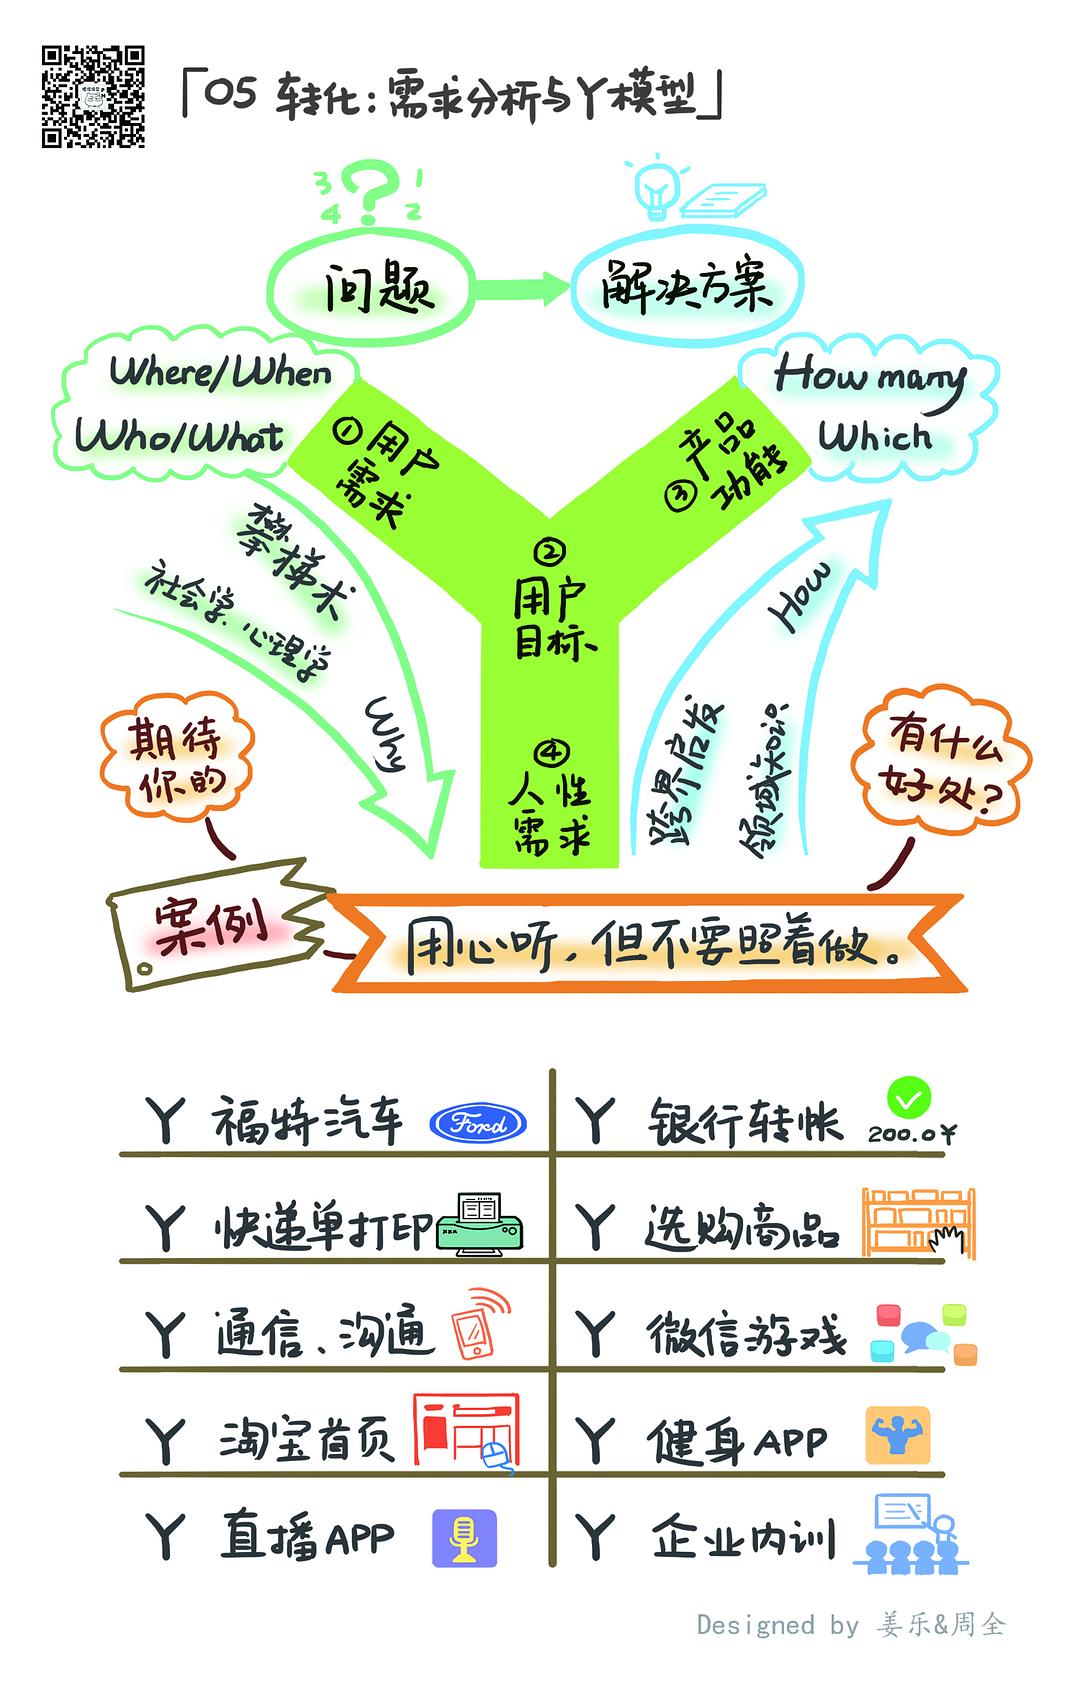 「05 转化：需求分析与Y模型」
3 ? 1
4 2
问题
解决方案
Where/When
Who/What
How many
Which
①用户
需求
③产品
功能
②
用户
目标
④
人性
需求
攀梯术
社会学、心理学
Why
How
跨界启发
领域知识
期待
你的
有什么
好处？
案例
用心听，但不要照着做。
Y 福特汽车 Ford
Y 银行转帐 200.0¥
Y 快递单打印
Y 选购商品
Y 通信、沟通
Y 微信游戏
Y 淘宝首页
Y 健身APP
Y 直播APP
Y 企业内训
Designed by 姜乐&周全